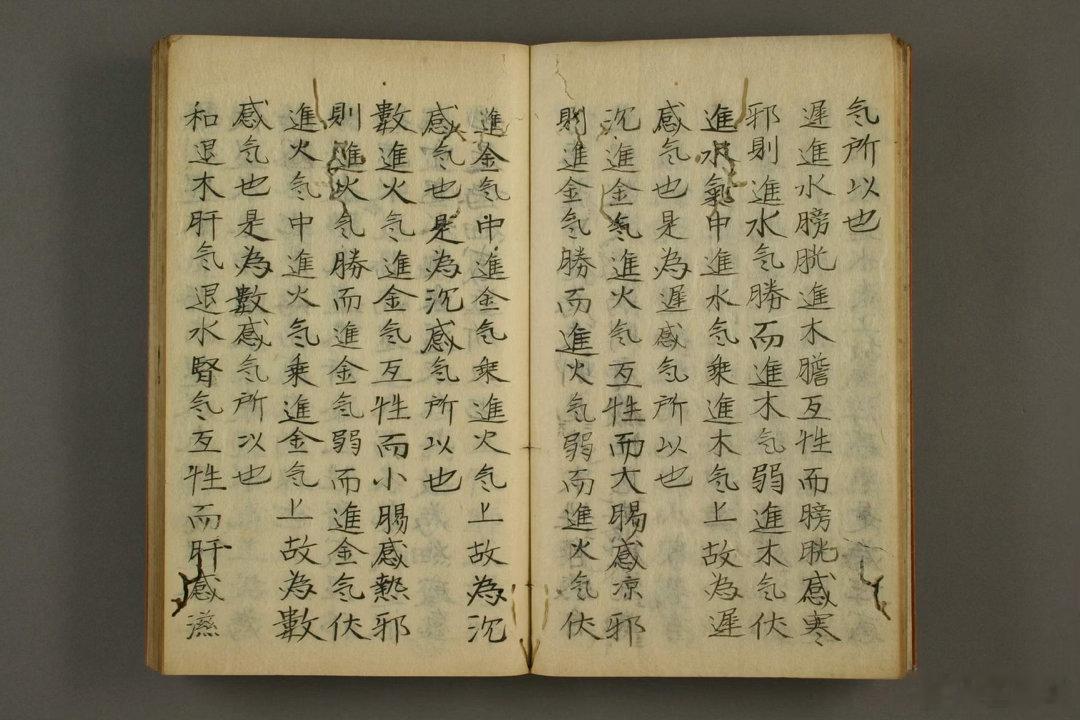 気所以也
遲進水膀胱進木膽互牲而膀胱感寒
邪則進水気勝而進木気弱進木気伏
進水氣中進水気乗進木気上故為遲
感気也是為遲感気所以也
沉進金気進火気互牲而大腸感凉邪
則進金気勝而進火気弱而進火気伏
進金気中進金気乗進火気上故為沉
感気也是為沉感気所以也
數進火気進金気互牲而小腸感熱邪
則進火気勝而進金気弱而進金気伏
進火気中進火気乗進金気上故為數
感気也是為數感気所以也
和退木肝気退水腎気互牲而肝感濕